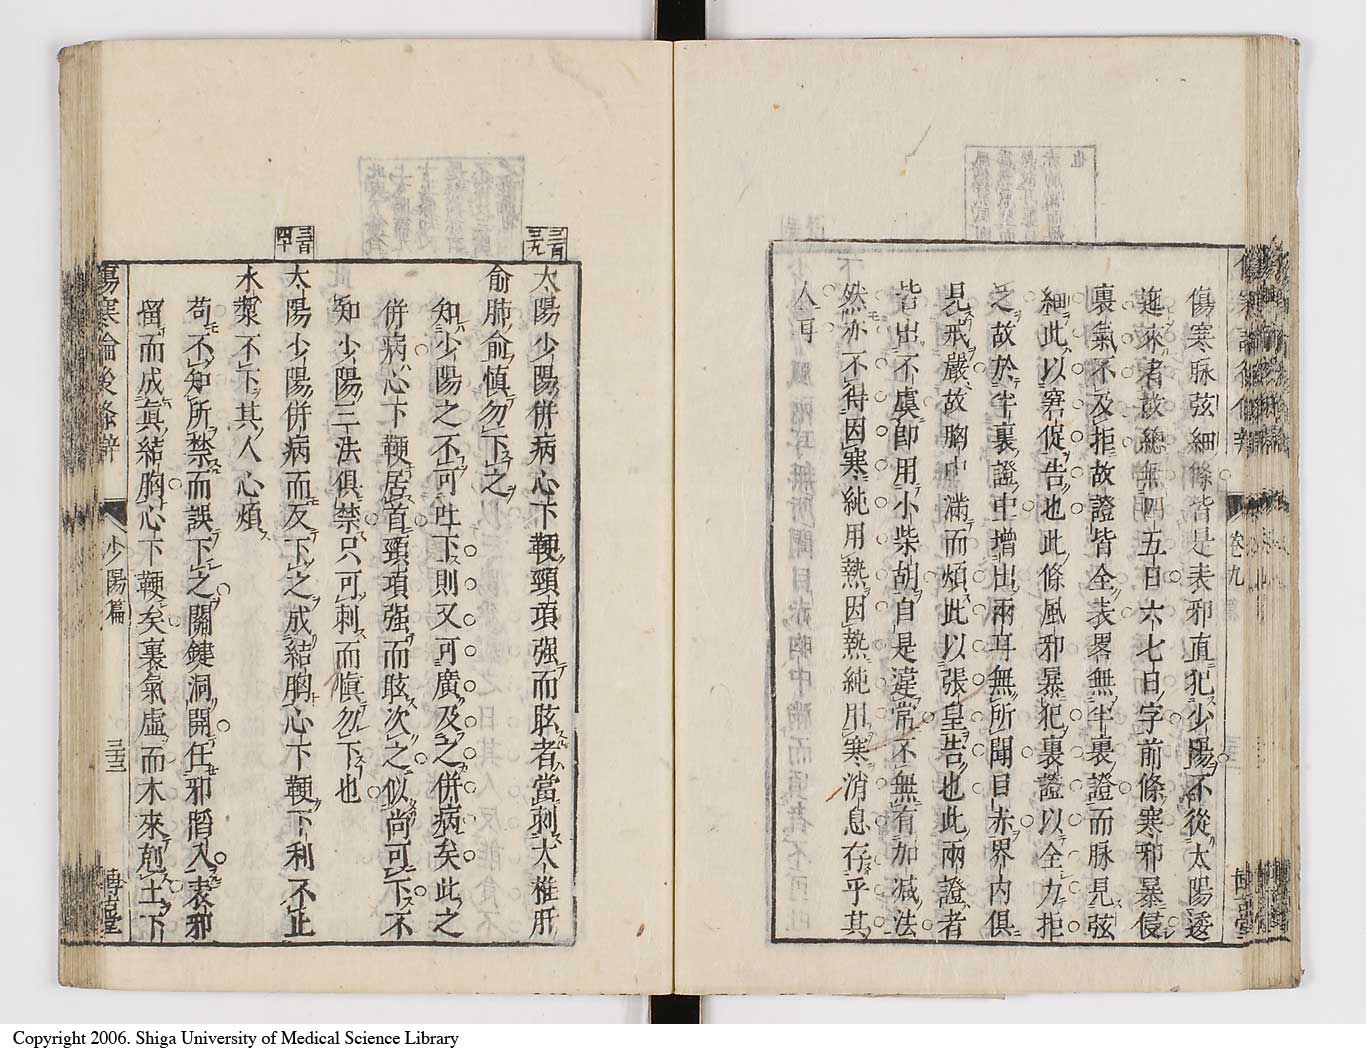 傷寒脉弦細條皆是表邪直犯少陽不從太陽逶
迤來者故總無四五日六七日字前條寒邪暴侵
裏氣不及拒故證皆全表畧無半裏證而脉見弦
細此以窘促告也此條風邪暴犯裏證以全力拒
之故於半裏證中增出兩耳無所聞目赤界内俱
見戒嚴故胸中滿而煩此以張皇告也此兩證者
皆出不虞即用小柴胡自是違常不無有加减法
然亦不得因寒純用熱因熱純用寒消息存乎其
人耳
卷九
三百三九
太陽少陽併病心下鞕頸項强而眩者當刺大椎肝
俞肺俞愼勿下之
知少陽之不可吐下則又可廣及之併病矣此之
併病心下鞕居首頸項强而眩次之似尚可下不
知少陽三法俱禁只可刺而愼勿下也
三百四十
太陽少陽併病而反下之成結胸心下鞕下利不止
水漿不下其人心煩
苟不知所禁而誤下之關鍵洞開任邪㬹入表邪
留而成眞結胸心下鞕矣裏氣虛而木來尅土下
傷寒論後條辨
少陽篇
三十三
博古堂
Copyright 2006. Shiga University of Medical Science Library